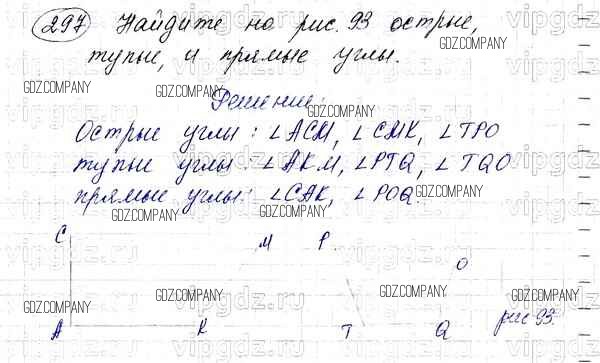 297 Найдите на рис. 93 острые,
тупые, и прямые углы.
Решение:
Острые углы: ∠ACM, ∠CMK, ∠TPO
тупые углы: ∠AKM, ∠PTQ, ∠TQO
прямые углы: ∠CAK, ∠POQ.
C M P O
A K T Q рис 93.
GDZ.COMPANY
vipgdz.ru